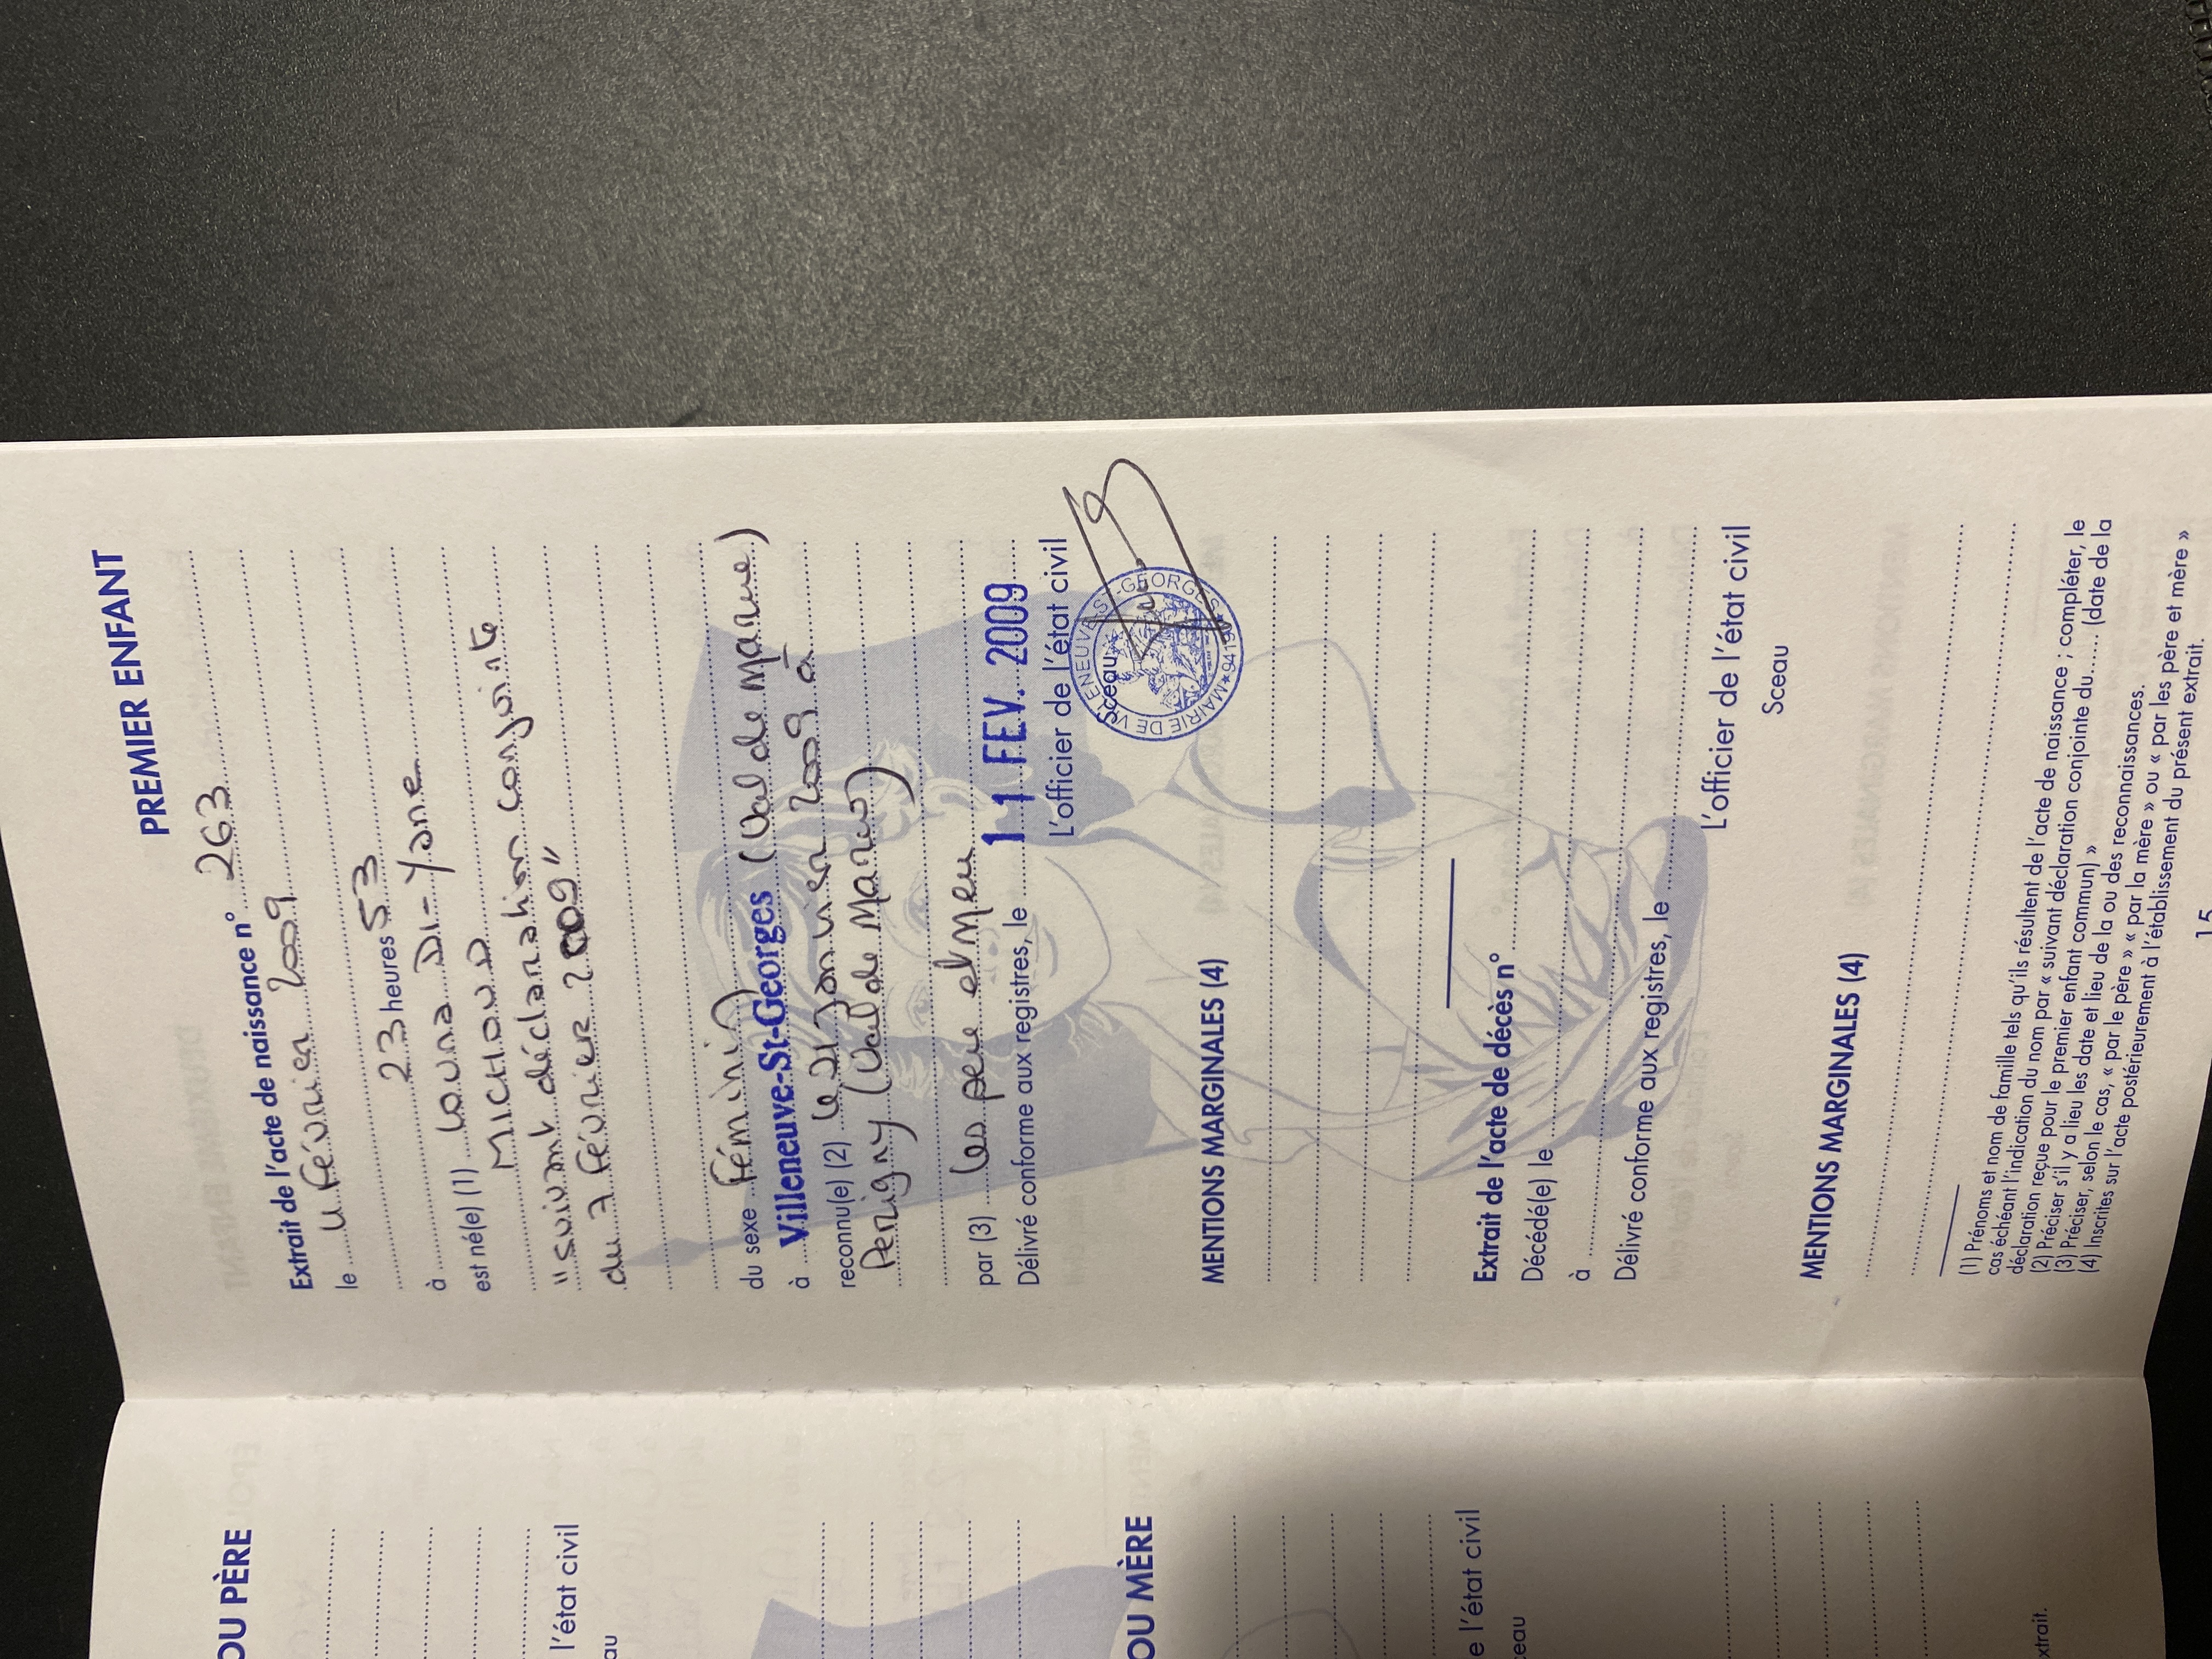 PREMIER ENFANT
Extrait de l'acte de naissance n° 263
le 4 Février 2009
23 heures 53
à
est né(e) (1) Louna DI-Yane
MICHAUD
"suivant déclaration conjointe
du 7 Février 2009"
du sexe Féminin
à Villeneuve-St-Georges (Val de Marne)
reconnu(e) (2) le 21 Janvier 2009 à
Perigny (Val de Marne)
par (3) les père et mère
Délivré conforme aux registres, le 11 FEV. 2009
L'officier de l'état civil
Sceau
MAIRIE DE VILLENEUVE-ST-GEORGES
MENTIONS MARGINALES (4)
Extrait de l'acte de décès n°
Décédé(e) le
à
Délivré conforme aux registres, le
L'officier de l'état civil
Sceau
MENTIONS MARGINALES (4)
(1) Prénoms et nom de famille tels qu'ils résultent de l'acte de naissance ; compléter, le
cas échéant l'indication du nom par « suivant déclaration conjointe du...... (date de la
déclaration reçue pour le premier enfant commun) »
(2) Préciser s'il y a lieu les date et lieu de la ou des reconnaissances.
(3) Préciser, selon le cas, « par le père » « par la mère » ou « par les père et mère »
(4) Inscrites sur l'acte postérieurement à l'établissement du présent extrait
15
OU PÈRE
l'état civil
au
OU MÈRE
e l'état civil
ceau
xtrait.